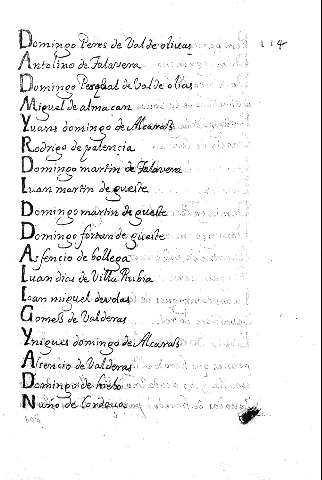 Domingo Peres de Val de olivas 114
Antolino de Talavera
Domingo Pasqual de Val de olias
Miguel de almaçan
Yuans domingo de Alcaraß
Rodrigo de palencia
Domingo martin de Talavera
Iuan martin de gueste
Domingo martin de gueste
Domingo fortun de gueste
Asfencio de bollega
Luan dias de Villa Rubia
Ioan miguel
Gomeß de Valderas
Ynigues domingo de Alcaraß
Assencio de Valderas
Domingo de
Nuño de Cordoua